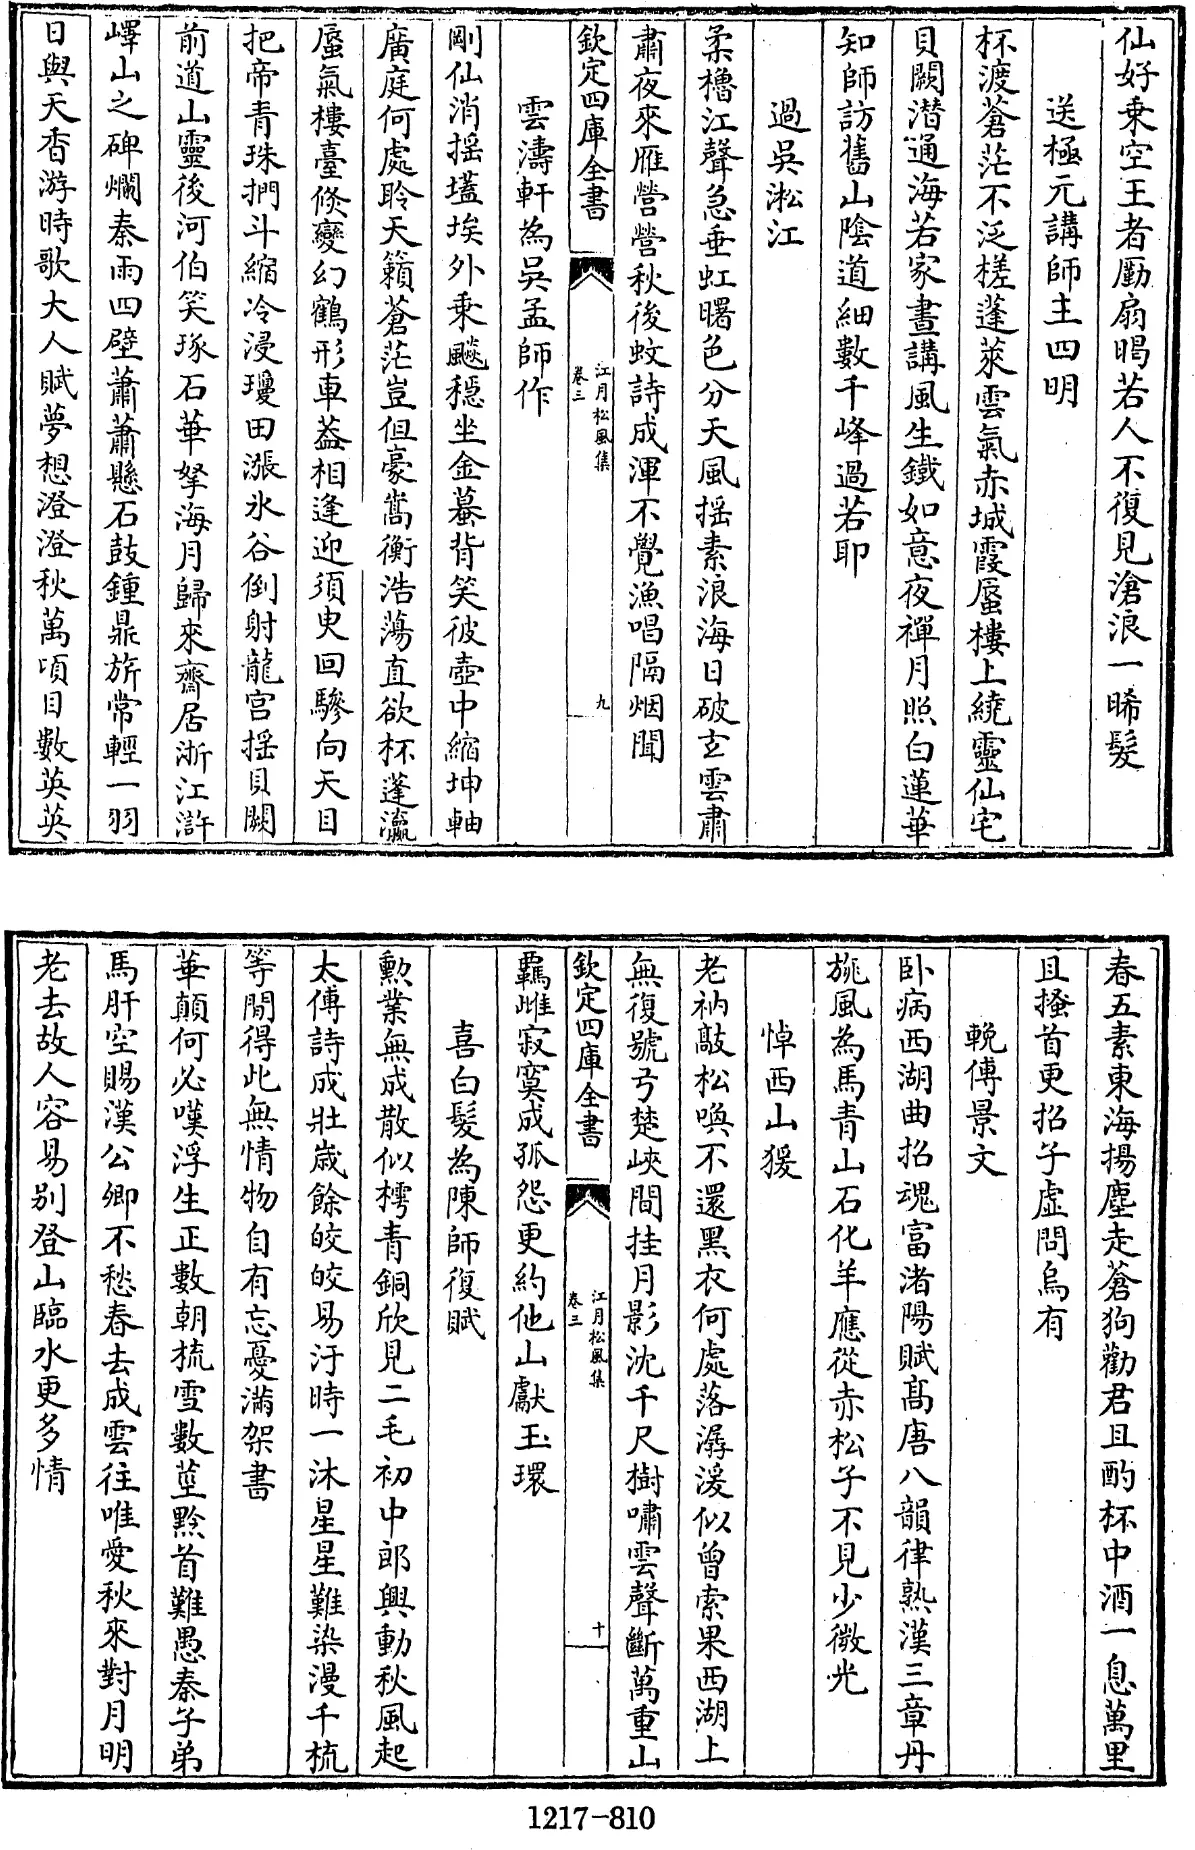 仙好乗空王者劚扇暍若人不復見滄浪一晞髮
送極元講師主四明
杯渡蒼茫不泛槎蓬萊雲氣赤城霞蜃樓上繞靈仙宅
貝闕潛通海若家晝講風生鐵如意夜禪月照白蓮華
知師訪舊山陰道細數千峰過若耶
過吳淞江
柔櫓江聲急垂虹曙色分天風揺素浪海日破玄雲肅
肅夜來雁營營秋後蚊詩成渾不覺漁唱隔烟聞
欽定四庫全書
江月松風集
卷三
九
雲濤軒為吳孟師作
剛仙消揺壒埃外乘飈穩坐金蟇背笑彼壺中縮坤軸
廣庭何處聆天籟蒼茫豈但豪嵩衡浩蕩直欲杯蓬瀛
蜃氣樓臺倏變幻鶴形車葢相逢迎須臾回驂向天目
把帝青珠捫斗縮冷浸瓊田漲氷谷倒射龍宫揺貝闕
前道山靈後河伯笑琢石華拏海月歸來齋居浙江滸
嶧山之碑爛秦雨四壁蕭蕭懸石鼓鍾鼎旂常輕一羽
日與天香游時歌大人賦夢想澄澄秋萬頃目數英英
春五素東海揚塵走蒼狗勸君且酌杯中酒一息萬里
且搔首更招子虚問烏有
輓傅景文
卧病西湖曲招魂富渚陽賦髙唐八韻律熟漢三章丹
旐風為馬青山石化羊應從赤松子不見少微光
悼西山猨
老衲敲松喚不還黑衣何處落潺湲似曾索果西湖上
無復號弓楚峽間挂月影沈千尺樹嘯雲聲斷萬重山
欽定四庫全書
江月松風集
卷三
十
羈雌寂寞成孤怨更約他山獻玉環
喜白髮為陳師復賦
勲業無成散似樗青銅欣見二毛初中郎興動秋風起
太傅詩成壯歲餘皎皎易汙時一沐星星難染漫千梳
等閒得此無情物自有忘憂滿架書
華顛何必嘆浮生正數朝梳雪數莖黔首難愚秦子弟
馬肝空賜漢公卿不愁春去成雲往唯愛秋來對月明
老去故人容易别登山臨水更多情
1217-810